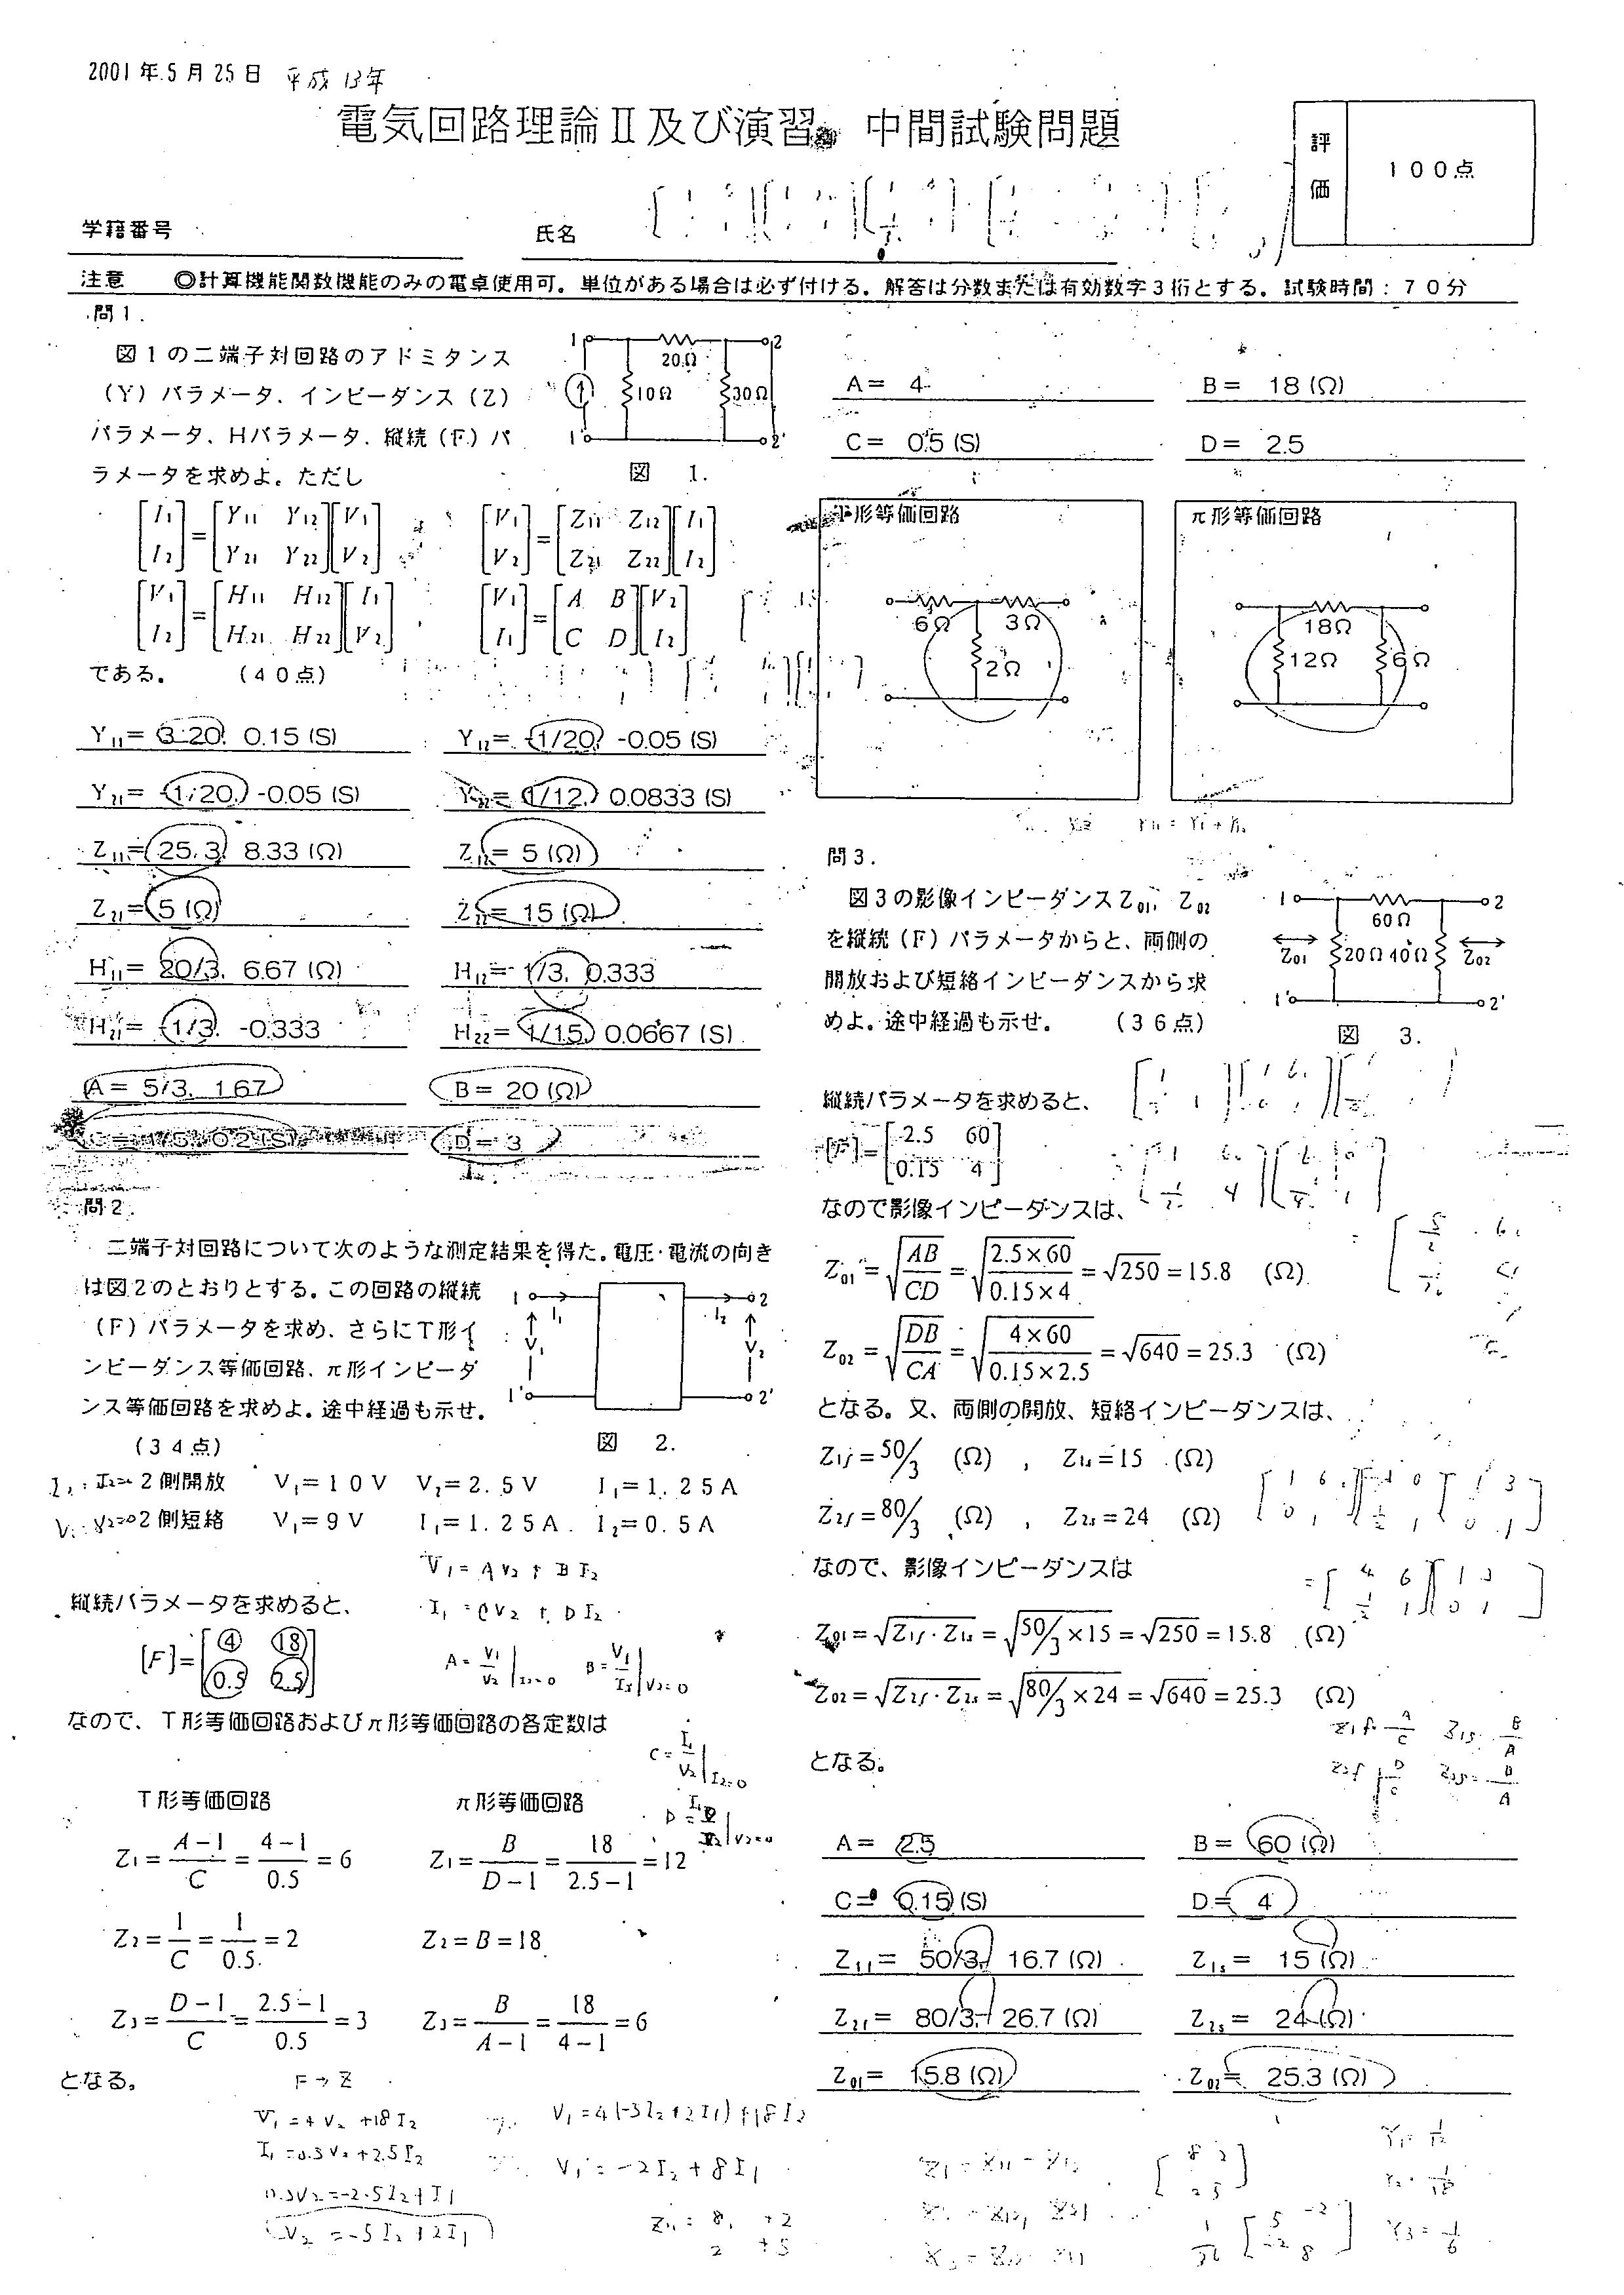 2001年5月25日 平成13年
電気回路理論Ⅱ及び演習 中間試験問題
評価 100点
学籍番号
氏名
注意 ◎計算機能関数機能のみの電卓使用可。単位がある場合は必ず付ける。解答は分数または有効数字3桁とする。試験時間：70分
問1.
図1の二端子対回路のアドミタンス
(Y)パラメータ、インピーダンス(Z)
パラメータ、Hパラメータ、縦続(F)パ
ラメータを求めよ。ただし
1 2
20Ω
10Ω 30Ω
1' 2'
図 1.
[I₁ I₂]=[Y₁₁ Y₁₂ Y₂₁ Y₂₂][V₁ V₂]
[V₁ V₂]=[Z₁₁ Z₁₂ Z₂₁ Z₂₂][I₁ I₂]
[V₁ I₂]=[H₁₁ H₁₂ H₂₁ H₂₂][I₁ V₂]
[V₁ I₁]=[A B C D][V₂ I₂]
である。 (40点)
Y₁₁= 3/20, 0.15 (S)
Y₁₂= -1/20, -0.05 (S)
Y₂₁= -1/20, -0.05 (S)
Y₂₂= 1/12, 0.0833 (S)
Z₁₁= 25/3, 8.33 (Ω)
Z₁₂= 5 (Ω)
Z₂₁= 5 (Ω)
Z₂₂= 15 (Ω)
H₁₁= 20/3, 6.67 (Ω)
H₁₂= 1/3, 0.333
H₂₁= -1/3, -0.333
H₂₂= 1/15, 0.0667 (S)
A= 5/3, 1.67
B= 20 (Ω)
C= 1/5, 0.2 (S)
D= 3
問2
二端子対回路について次のような測定結果を得た。電圧・電流の向き
は図2のとおりとする。この回路の縦続
(F)パラメータを求め、さらにT形イ
ンピーダンス等価回路、π形インピーダ
ンス等価回路を求めよ。途中経過も示せ。
(34点)
1 I₁ I₂ 2
V₁ V₂
1' 2'
図 2.
I₂=0 2側開放 V₁=10V V₂=2.5V I₁=1.25A
V₂=0 2側短絡 V₁=9V I₁=1.25A. I₂=0.5A
V₁=AV₂+BI₂
I₁=CV₂+DI₂
縦続パラメータを求めると、
[F]=[4 18 0.5 2.5]
A=V₁/V₂|I₂=0 B=V₁/I₂|V₂=0
なので、T形等価回路およびπ形等価回路の各定数は
C=I₁/V₂|I₂=0
T形等価回路 π形等価回路
Z₁=(A-1)/C=(4-1)/0.5=6
Z₁=B/(D-1)=18/(2.5-1)=12
Z₂=1/C=1/0.5=2
Z₂=B=18
Z₃=(D-1)/C=(2.5-1)/0.5=3
Z₃=B/(A-1)=18/(4-1)=6
となる。
F→Z
V₁=4V₂+18I₂
I₁=0.5V₂+2.5I₂
0.5V₂=-2.5I₂+I₁
V₂=-5I₂+2I₁
V₁=-2I₂+8I₁
A= 4
B= 18 (Ω)
C= 0.5 (S)
D= 2.5
T形等価回路
6Ω 3Ω
2Ω
π形等価回路
18Ω
12Ω 6Ω
問3.
図3の影像インピーダンスZ₀₁, Z₀₂
を縦続(F)パラメータからと、両側の
開放および短絡インピーダンスから求
めよ。途中経過も示せ。 (36点)
1 2
60Ω
Z₀₁ 20Ω 40Ω Z₀₂
1' 2'
図 3.
縦続パラメータを求めると、
[F]=[2.5 60 0.15 4]
なので影像インピーダンスは、
Z₀₁=√(AB/CD)=√(2.5×60/0.15×4)=√250=15.8 (Ω)
Z₀₂=√(DB/CA)=√(4×60/0.15×2.5)=√640=25.3 (Ω)
となる。又、両側の開放、短絡インピーダンスは、
Z₁f=50/3 (Ω) , Z₁s=15 (Ω)
Z₂f=80/3 (Ω) , Z₂s=24 (Ω)
なので、影像インピーダンスは
Z₀₁=√(Z₁f・Z₁s)=√(50/3×15)=√250=15.8 (Ω)
Z₀₂=√(Z₂f・Z₂s)=√(80/3×24)=√640=25.3 (Ω)
となる。
A= 2.5
B= 60 (Ω)
C= 0.15 (S)
D= 4
Z₁f= 50/3, 16.7 (Ω)
Z₁s= 15 (Ω)
Z₂f= 80/3, 26.7 (Ω)
Z₂s= 24 (Ω)
Z₀₁= 15.8 (Ω)
Z₀₂= 25.3 (Ω)